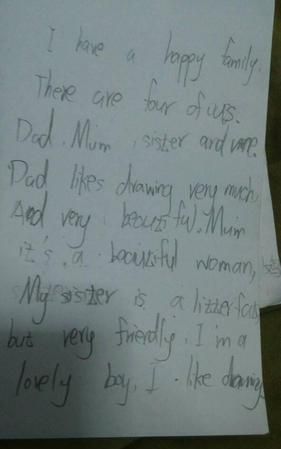 I have a happy family.
There are four of us.
Dad. Mum, sister and me.
Dad likes drawing very much,
And very beautiful. Mum
it's a beautiful woman,
My sister is a litter fat,
but very friendly. I'm a
lovely boy, I like drawing